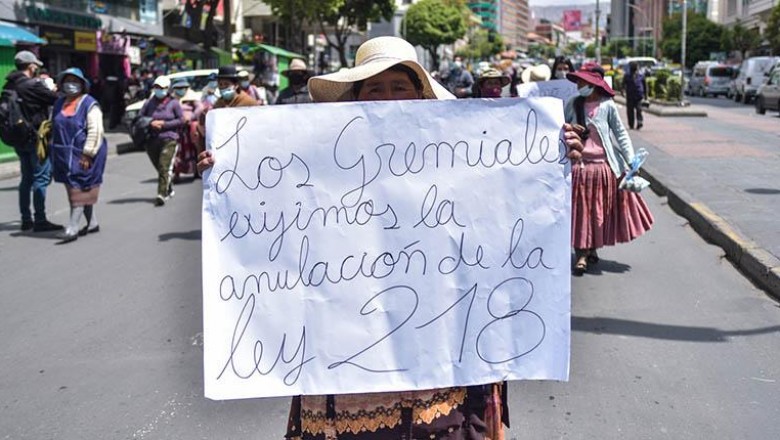 Los Gremiales
exijimos la
anulación de la
ley 218